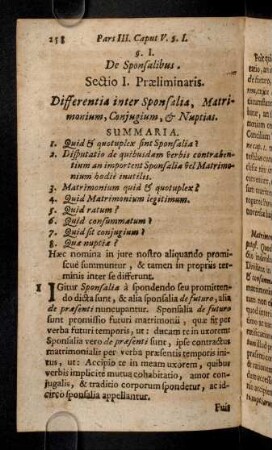 258 Pars III. Caput V. §. I.
§. I.
De Sponsalibus.
Sectio I. Præliminaris.
Differentia inter Sponsalia, Matri-
monium, Conjugium, & Nuptias.
SUMMARIA.
1. Quid & quotuplex sint Sponsalia?
2. Disputatio de quibusdam verbis contrahen-
tium an importent Sponsalia vel Matrimo-
nium hodie inutilis.
3. Matrimonium quid & quotuplex?
4. Quid Matrimonium legitimum.
5. Quid ratum?
6. Quid consummatum?
7. Quid sit conjugium?
8. Quæ nuptiæ?
Hæc nomina in jure nostro aliquando promi-
scuè summuntur, & tamen in propriis ter-
minis inter se differunt.
1 Igitur Sponsalia à spondendo seu promitten-
do dicta sunt, & alia sponsalia de futuro, alia
de præsenti nuncupantur. Sponsalia de futuro
sunt promissio futuri matrimonii, quæ fit per
verba futuri temporis, ut: ducam te in uxorem:
Sponsalia vero de præsenti sunt, ipse contractus
matrimonialis per verba præsentis temporis ini-
tus, ut: Accipio te in meam uxorem, quibus
verbis implicité mutua cohabitatio, amor con-
jugalis, & traditio corporum spondetur, ac id-
circo sponsalia appellantur.
Fuit